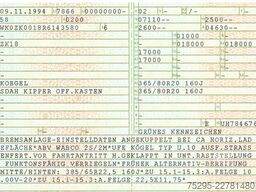 09.11.1994 7866 00000000-
58 0200
WKOZK0018R6143580 6
ZK18
KOEGEL
SDAH KIPPER OFF.KASTEN
02
07110-- 2500--
02600-- 04630--
01000
018000 018000
17000
17000
365/80R20 160J
365/80R20 160J
E UH784676
GRÜNES KENNZEICHEN
BREMSANLAGE-EINSTELLDATEN ANGEKUPPELT BEI CA HORIZ.LAD
EFLÄCHE*ABV WABCO 2S/2M*UFE KÖGEL TYP U.10 AUSF.STRASSE
ENFERT.VOR FAHRTANTRITT H.GEKLAPPT IN UNT.RASTSTELLUNG
FUNKTIONSFÄHIG VERRIEGELN*FRÜHER ALTERNATIV-BEREIFUNG
MITTE/HINTEN: 385/65R22,5 160J*ZU 15.1-15.3:A.FELGE 10
.00V-20*ZU 15.1-15.3:A.FELGE 22.5X11.75*
75295-22781480